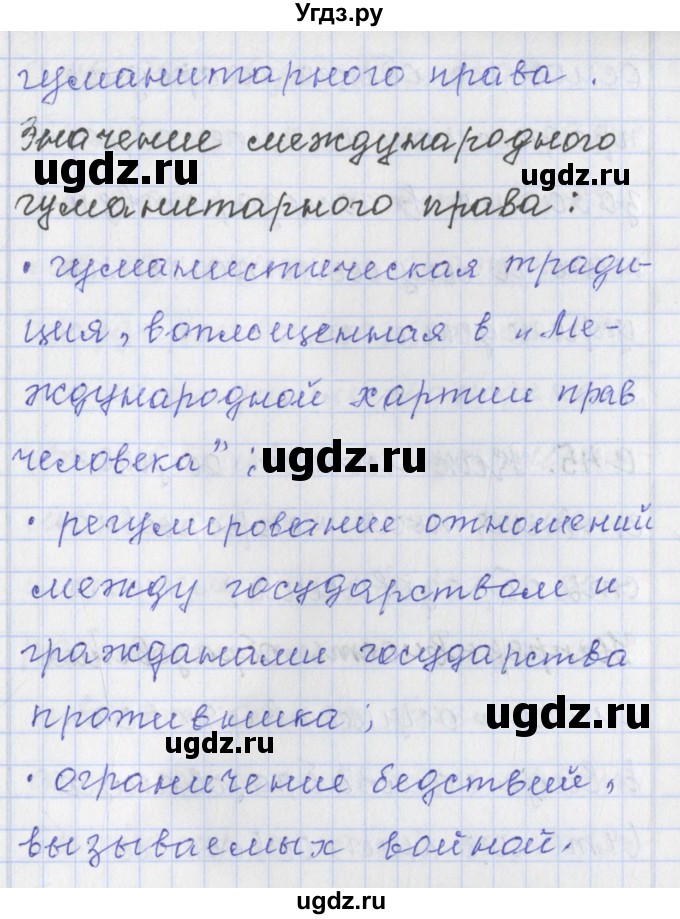 Угдз.ру
гуманитарного права.
Значение международного
ugdz.ru
гуманитарного права:
• гуманистическая тради-
ция, воплощенная в „Ме-
ждународной хартии прав
человека”;
ugdz.ru
• регулирование отношений
между государством и
гражданами государства
противника;
ugdz.ru
ugdz.ru
• ограничение бедствий,
вызываемых войной.
ugdz.ru